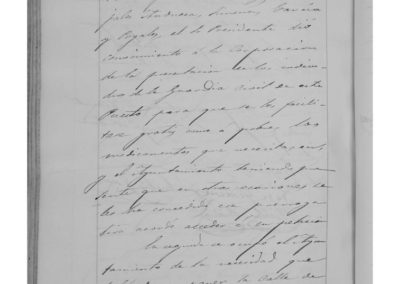 y Rogaly, el Sr Presidente dió
conocimiento á la Corporacion
de la presentacion de los indivi-
duos de la Guardia civil de este
Puesto para que se les facili-
ten gratis como a pobres, los
medicamentos que necesiten,
y el Ayuntamiento teniendo pre-
sente que en otras ocasiones se
les ha concedido esa prerroga-
tiva acordó acceder á su peticion
la seguida se ocupó el Ayun-
tamiento de la necesidad que
la Calle de